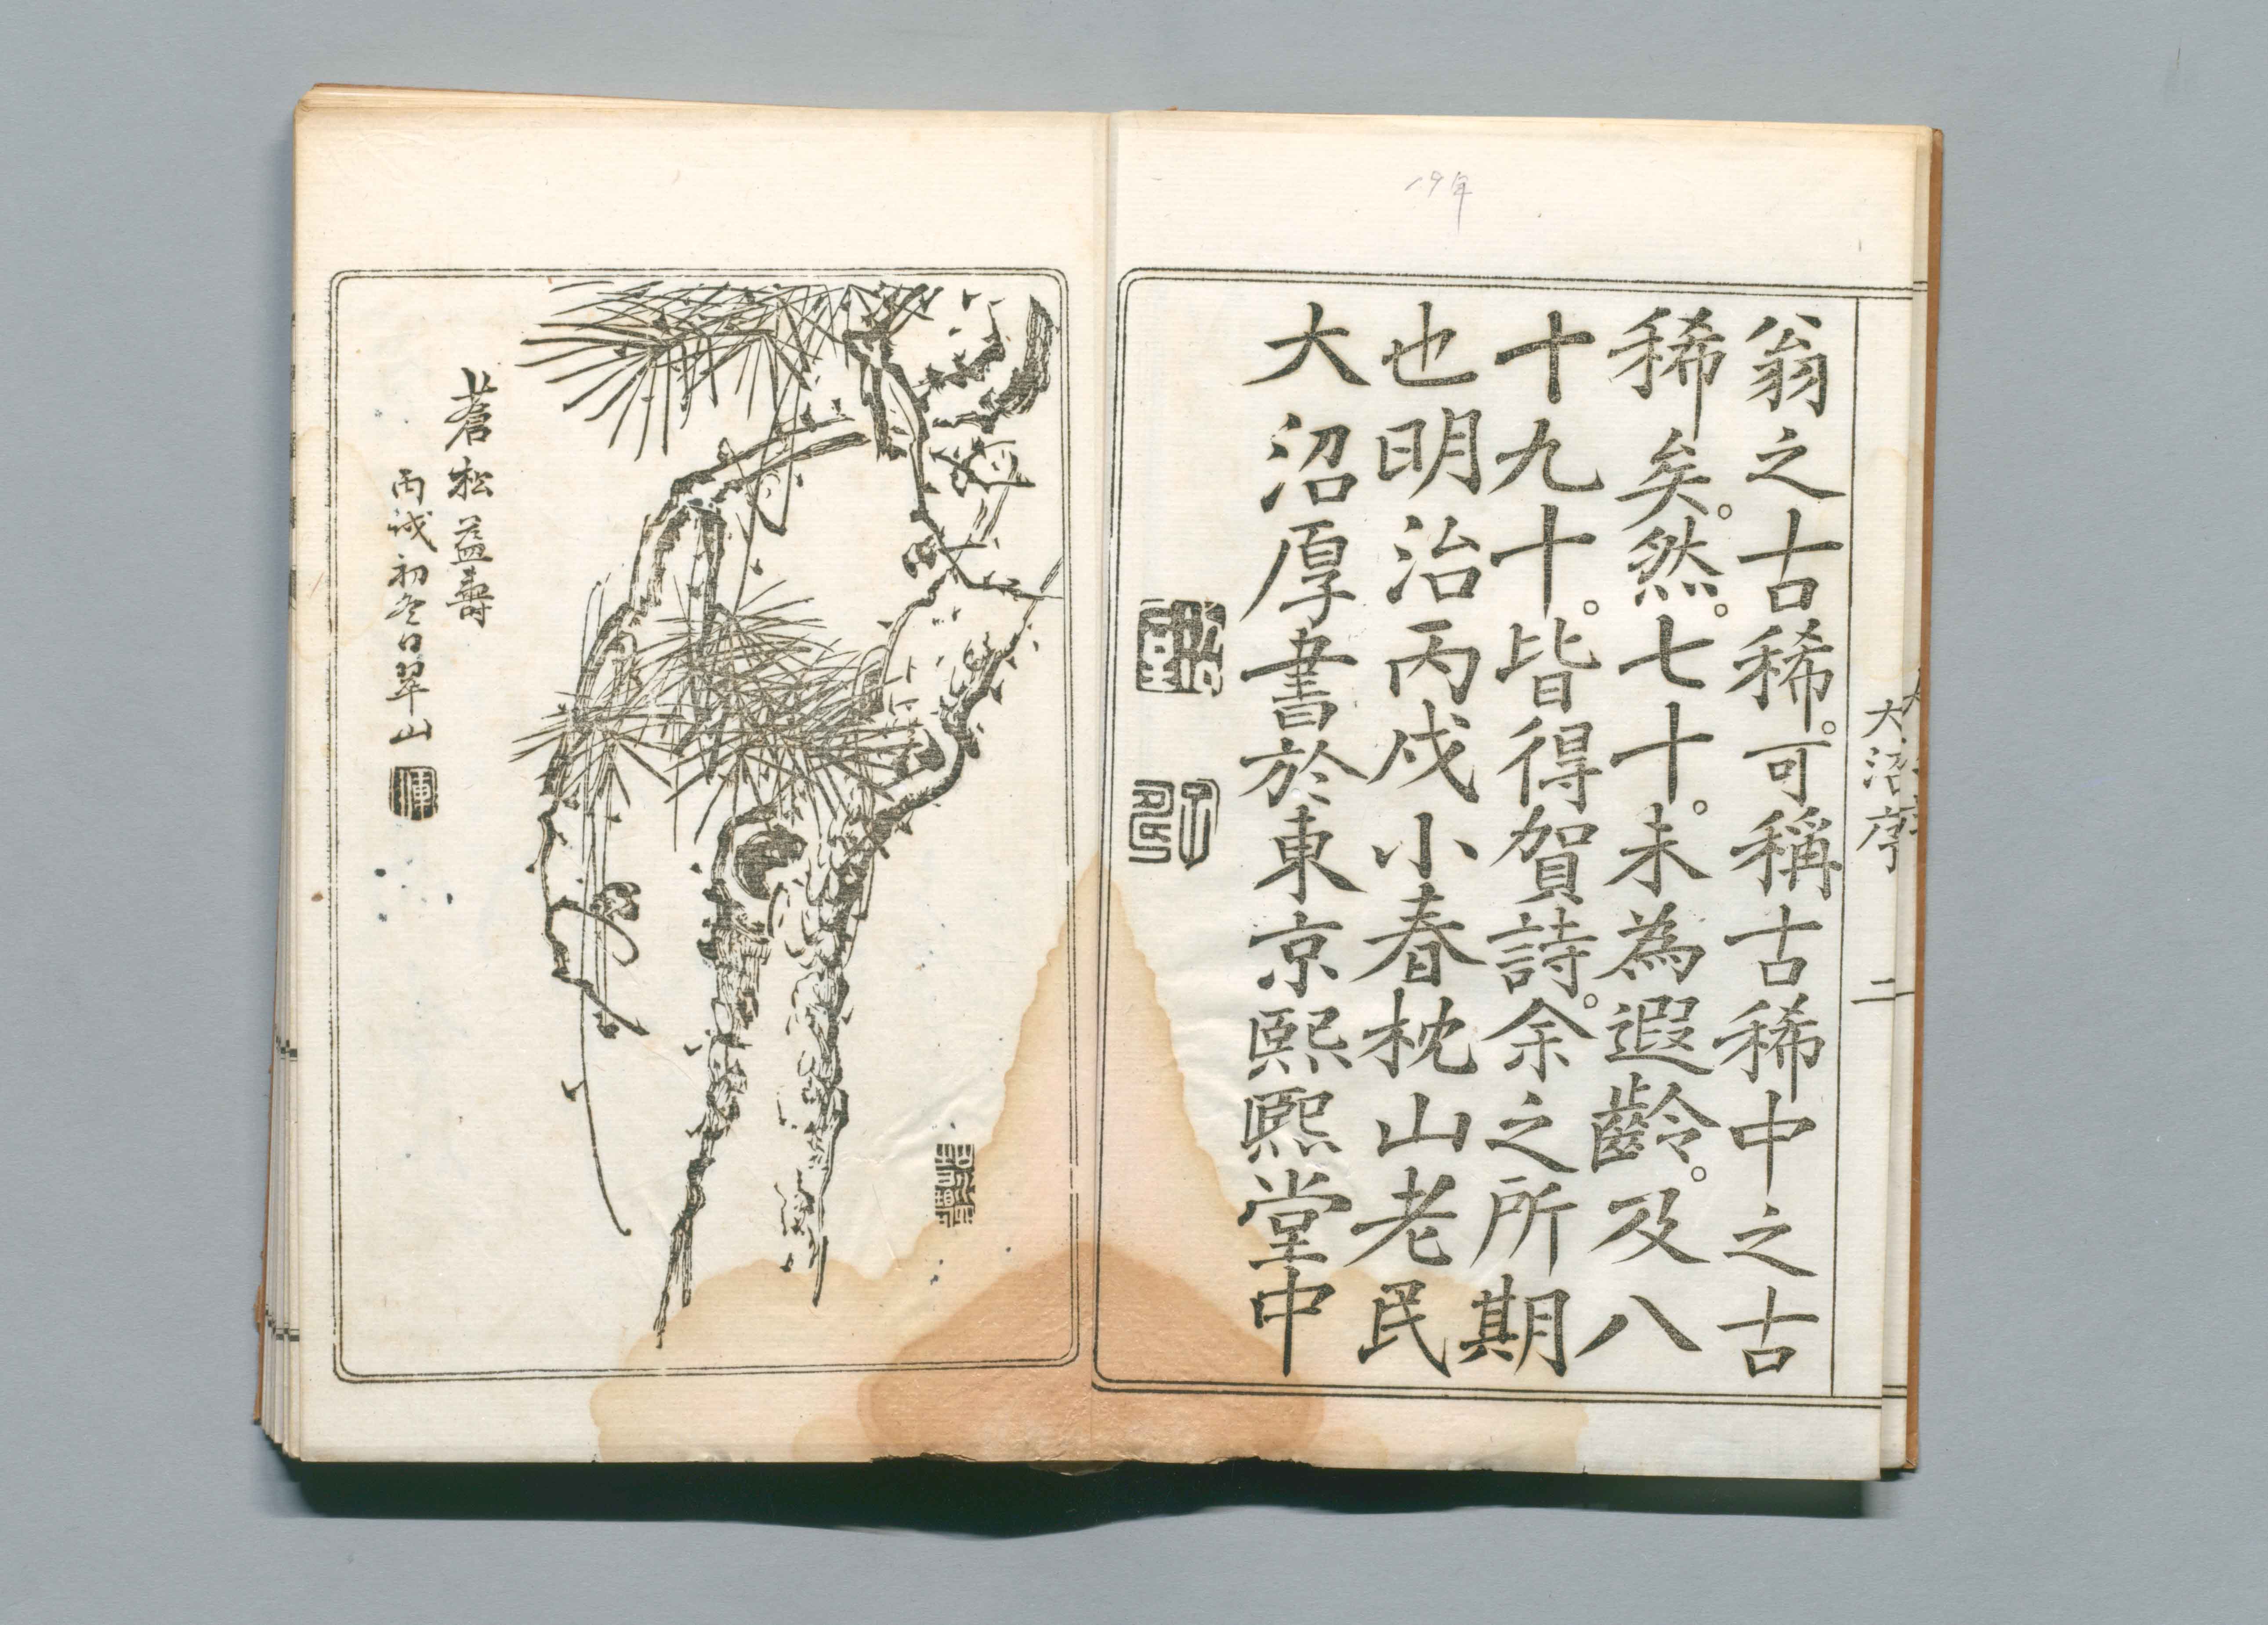 19年
大沼序 二
翁之古稀。可稱古稀中之古
稀矣。然。七十。未為遐齡。及八
十九十。皆得賀詩。余之所期
也明治丙戌小春枕山老民
大沼厚書於東京熙熙堂中
蒼松益壽
丙戌初冬日翠山